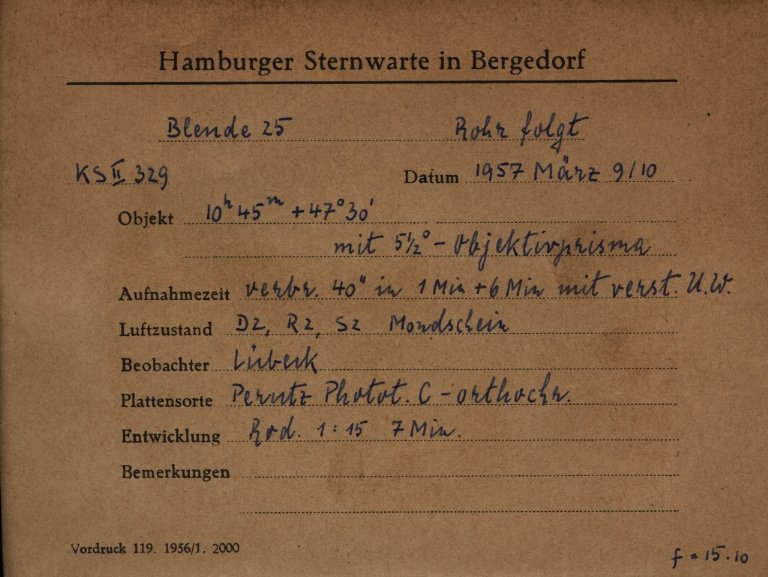 Hamburger Sternwarte in Bergedorf
Blende 25 Rohr folgt
KS II 329 Datum 1957 März 9/10
Objekt 10h 45m + 47° 30'
mit 5½° - Objektivprisma
Aufnahmezeit verbr. 40" in 1 Min + 6 Min mit verst. U.W.
Luftzustand D2, R2, S2 Mondschein
Beobachter Lübeck
Plattensorte Perutz Photot. C - orthochr.
Entwicklung Rod. 1 : 15 7 Min.
Bemerkungen
Vordruck 119. 1956/J. 2000
f = 15.10